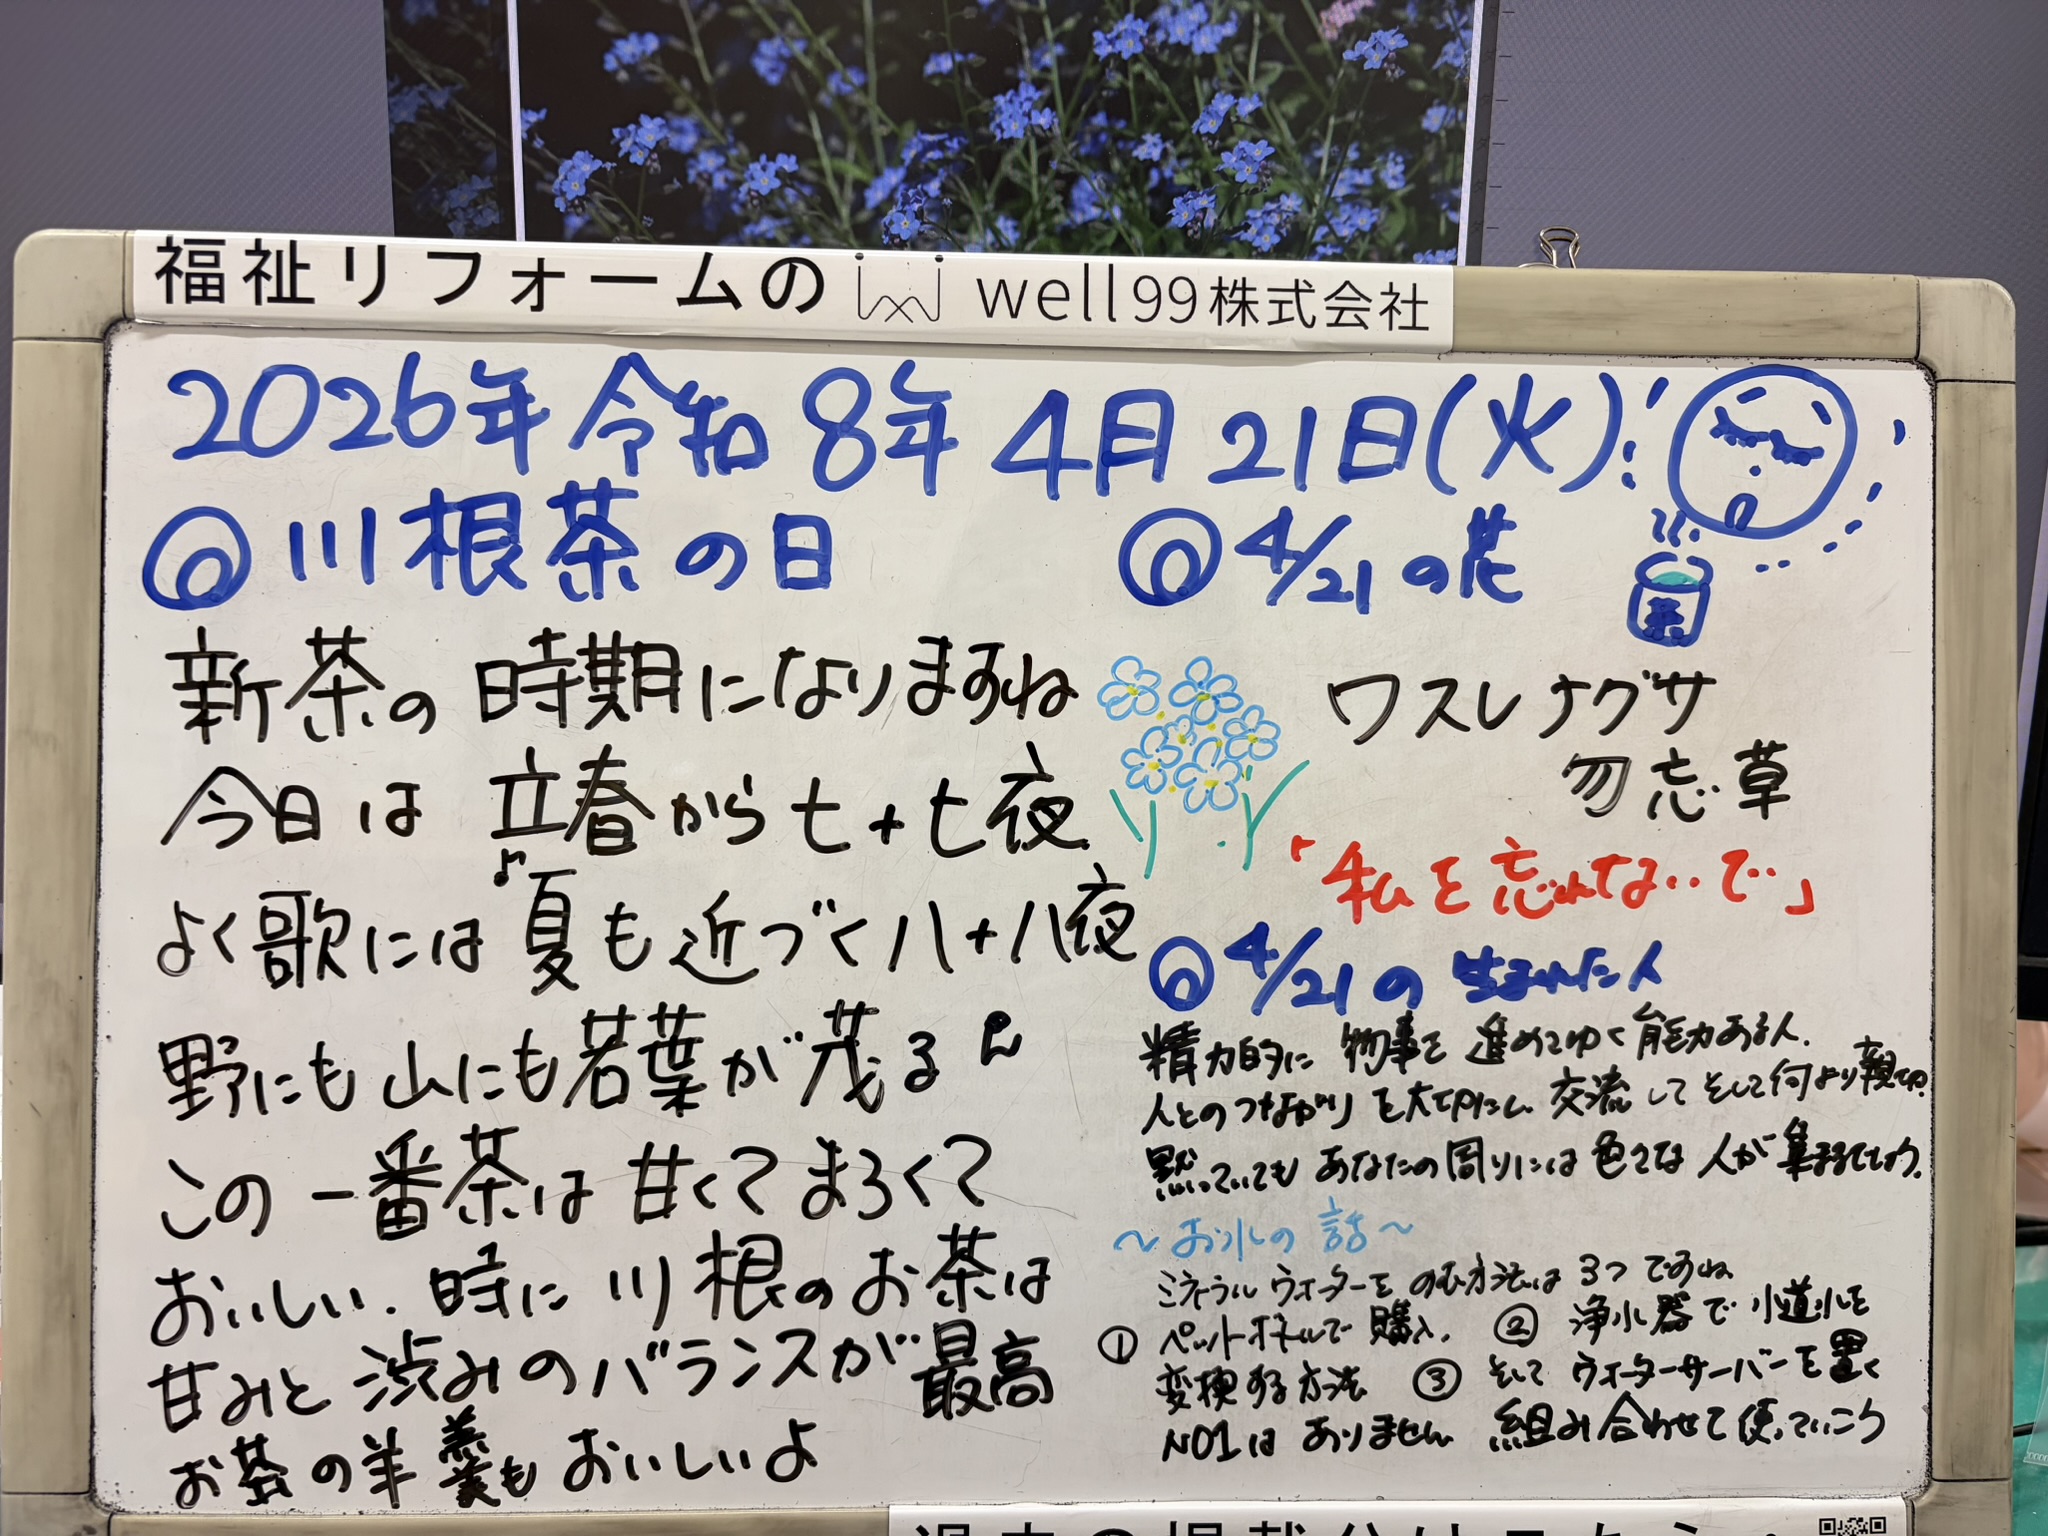 福祉リフォームの well99株式会社
2026年 令和8年 4月21日(火)
◎川根茶の日
新茶の時期になりますね
今日は 立春から七十七夜
よく歌には ♪夏も近づく八十八夜
野にも山にも若葉が茂る♪
この一番茶は甘くてまろくて
おいしい、時に川根のお茶は
甘みと渋みのバランスが最高
お茶の羊羹もおいしいよ
◎4/21の花
茶
ワスレナグサ
勿忘草
「私を忘れないで」
◎4/21の生まれた人
精力的に物事を進めてゆく能力ある人。
人とのつながりを大切にし 交流して そして何より親切。
黙っていても あなたの周りには色々な人が集まるでしょう。
～お水の話～
ミネラルウォーターをのむ方法は3つですね
① ペットボトルで購入。 ② 浄水器で水道水を
変換する方法 ③ そしてウォーターサーバーを置く
NO1はありません 組み合わせて使っていこう